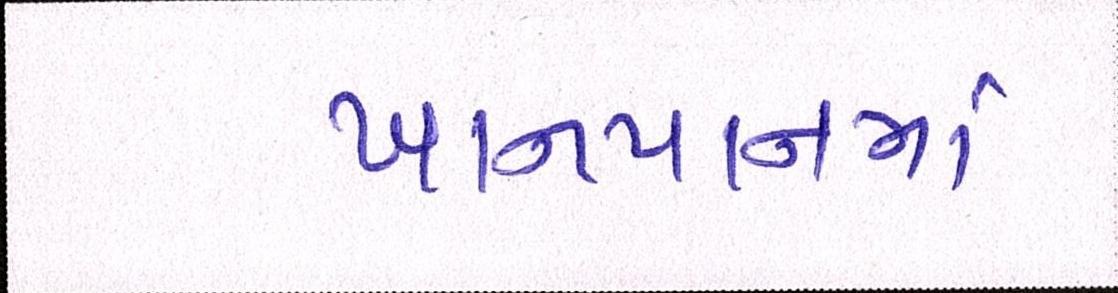 ખાનપાનમાં